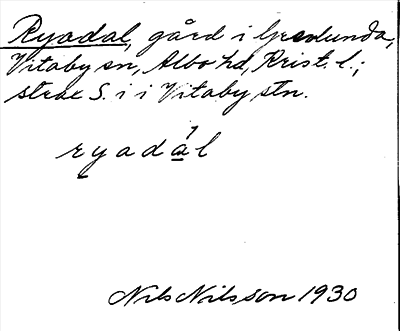 Ryadal, gård i Grevlunda,
Vitaby sn, Albo hd, Krist. l.;
strax S. i i Vitaby stn.
ryadál
Nils Nilsson 1930